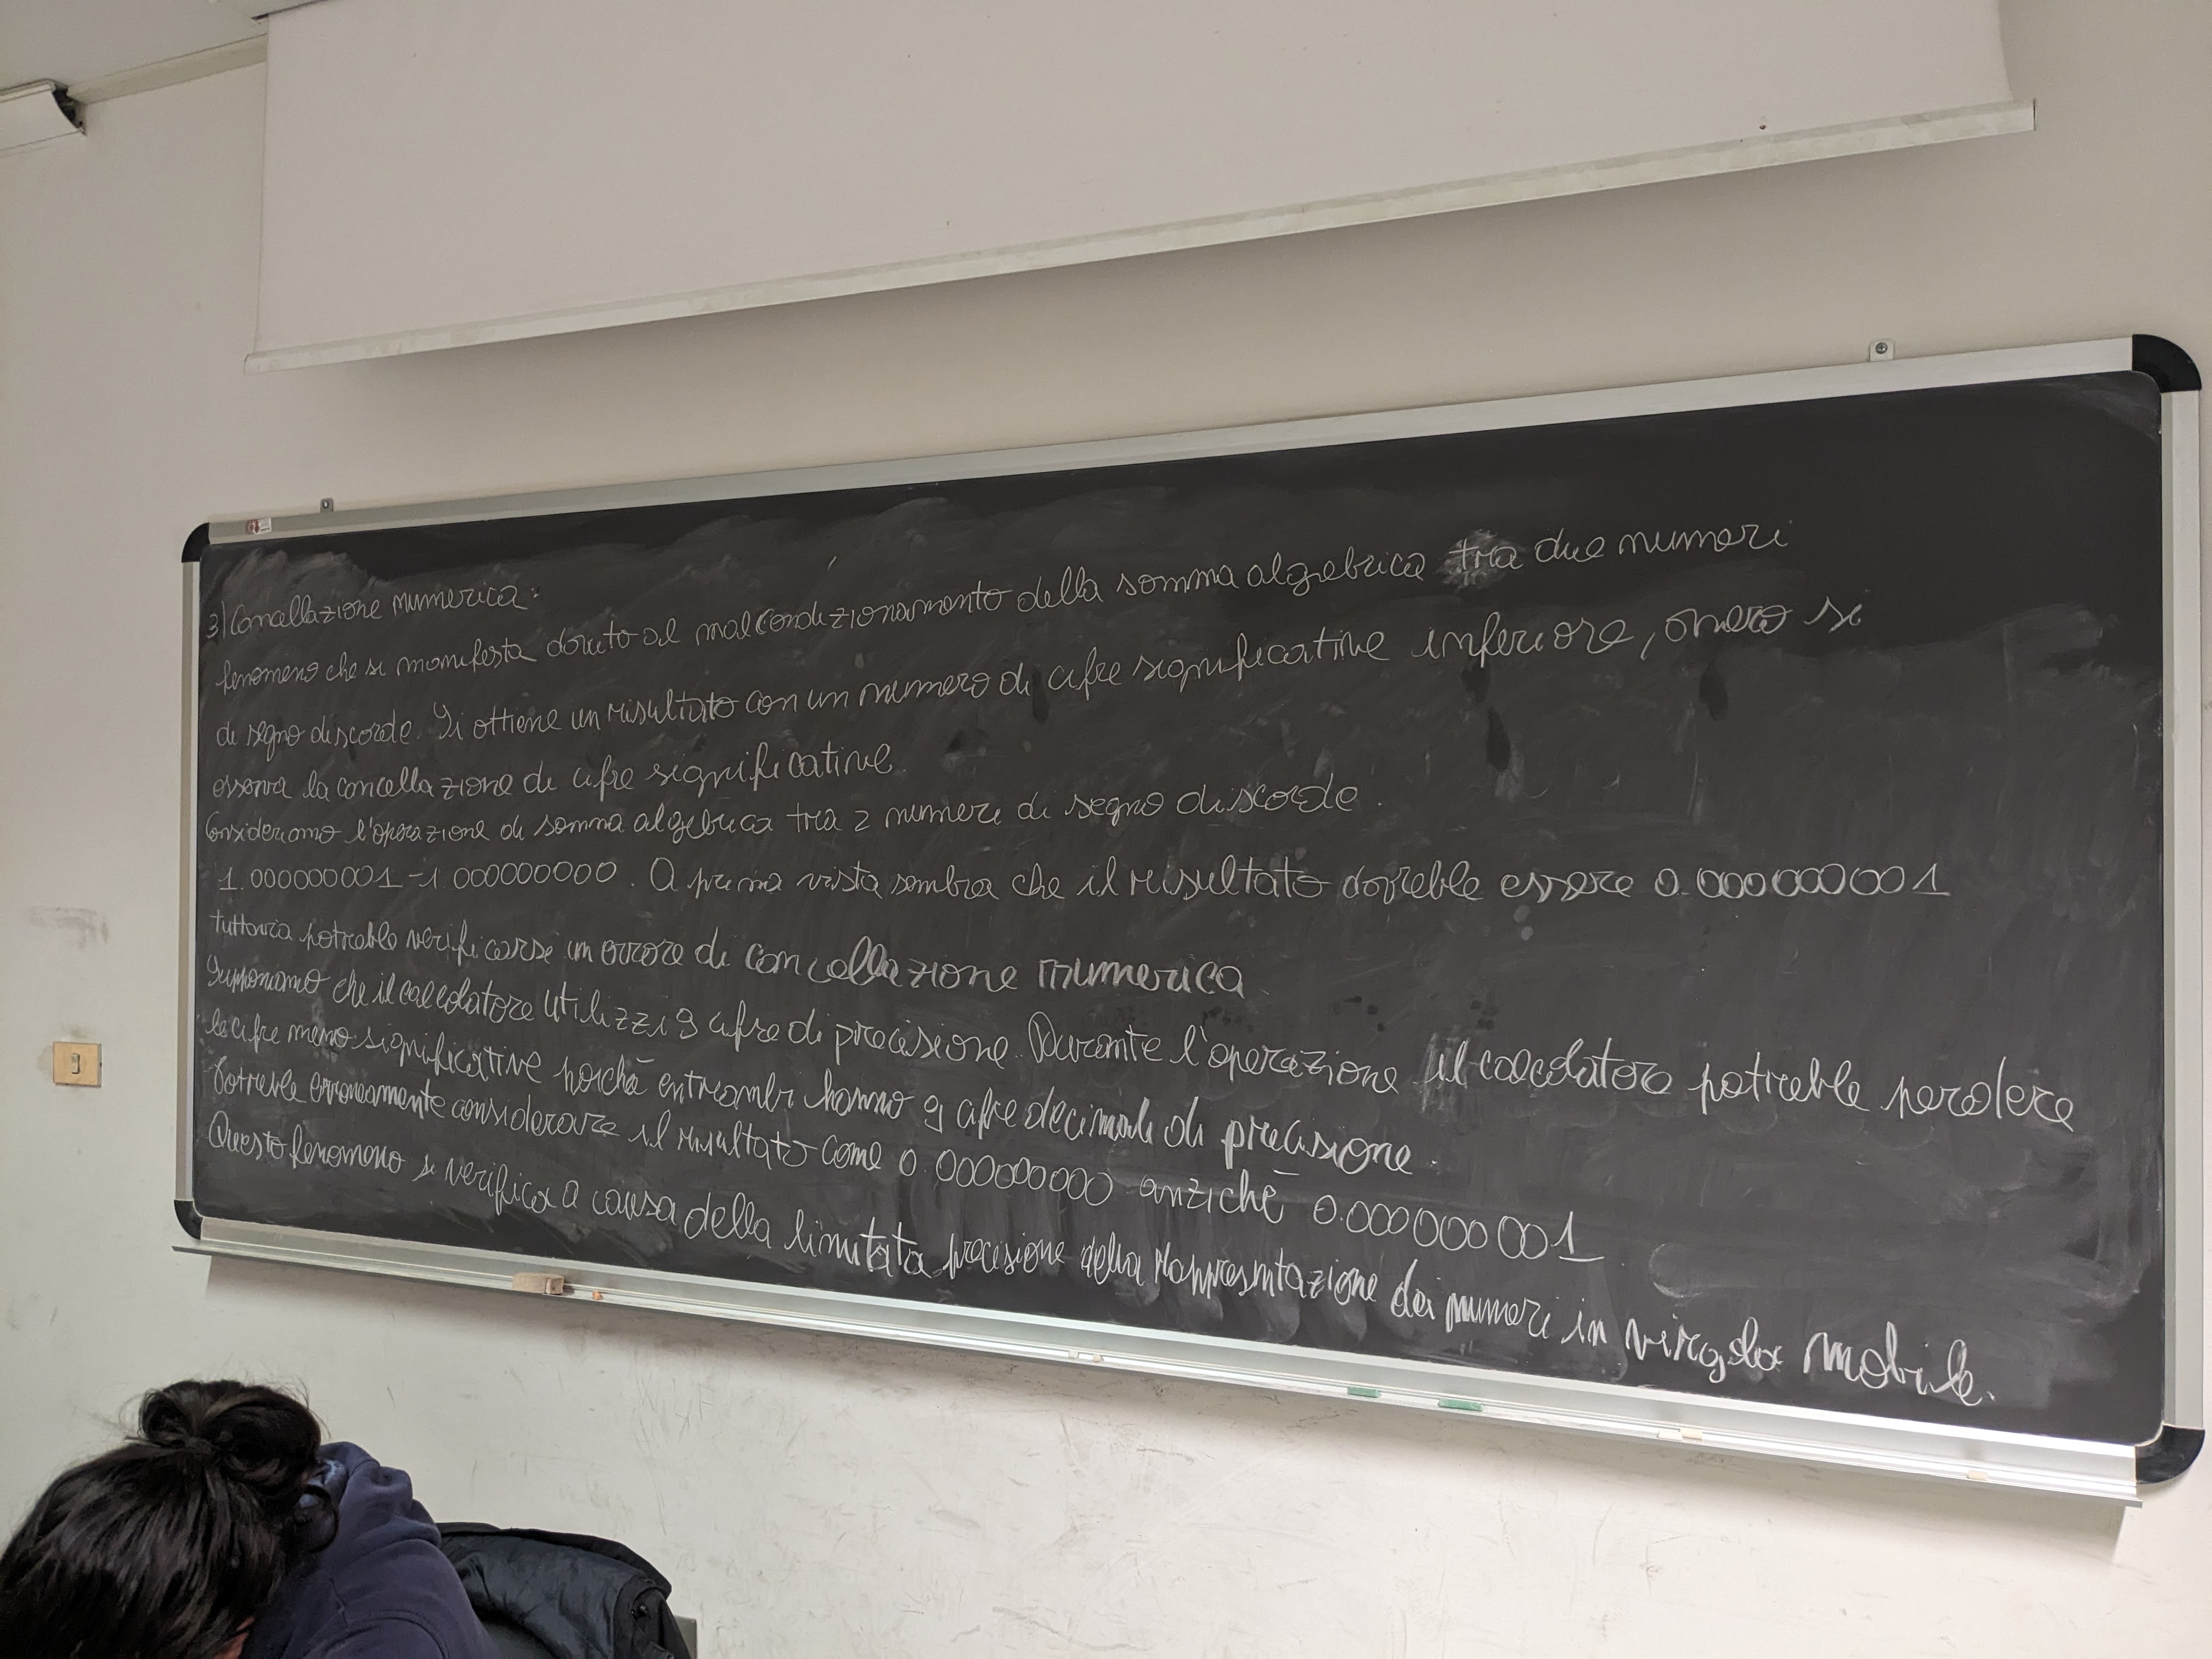 3) Cancellazione numerica:
fenomeno che si manifesta dovuto al mal condizionamento della somma algebrica tra due numeri
di segno discorde. Si ottiene un risultato con un numero di cifre significative inferiore, ovvero si
osserva la cancellazione di cifre significative.
Consideriamo l'operazione di somma algebrica tra 2 numeri di segno discorde.
1.000000001-1.000000000. A prima vista sembra che il risultato dovrebbe essere 0.000000001
tuttavia potrebbe verificarsi un errore di cancellazione numerica
Supponiamo che il calcolatore utilizzi 9 cifre di precisione. Durante l'operazione il calcolatore potrebbe perdere
le cifre meno significative poiché entrambi hanno 9 cifre decimali di precisione.
Potrebbe erroneamente considerare il risultato come 0.000000000 anziché 0.000000001
Questo fenomeno si verifica a causa della limitata precisione della rappresntazione dei numeri in virgola mobile.